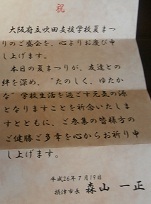 祝
大阪府立吹田支援学校夏まつ
りのご盛会を、心よりお慶び申
し上げます。
本日の夏まつりが、友達との
絆を深め、“たのしく、ゆたか
な”学校生活を過ごす元気の源
となりますことを祈念いたしま
すとともに、ご参集の皆様方の
ご健勝ご多幸を心からお祈り申
し上げます。
平成26年7月19日
摂津市長 森山一正